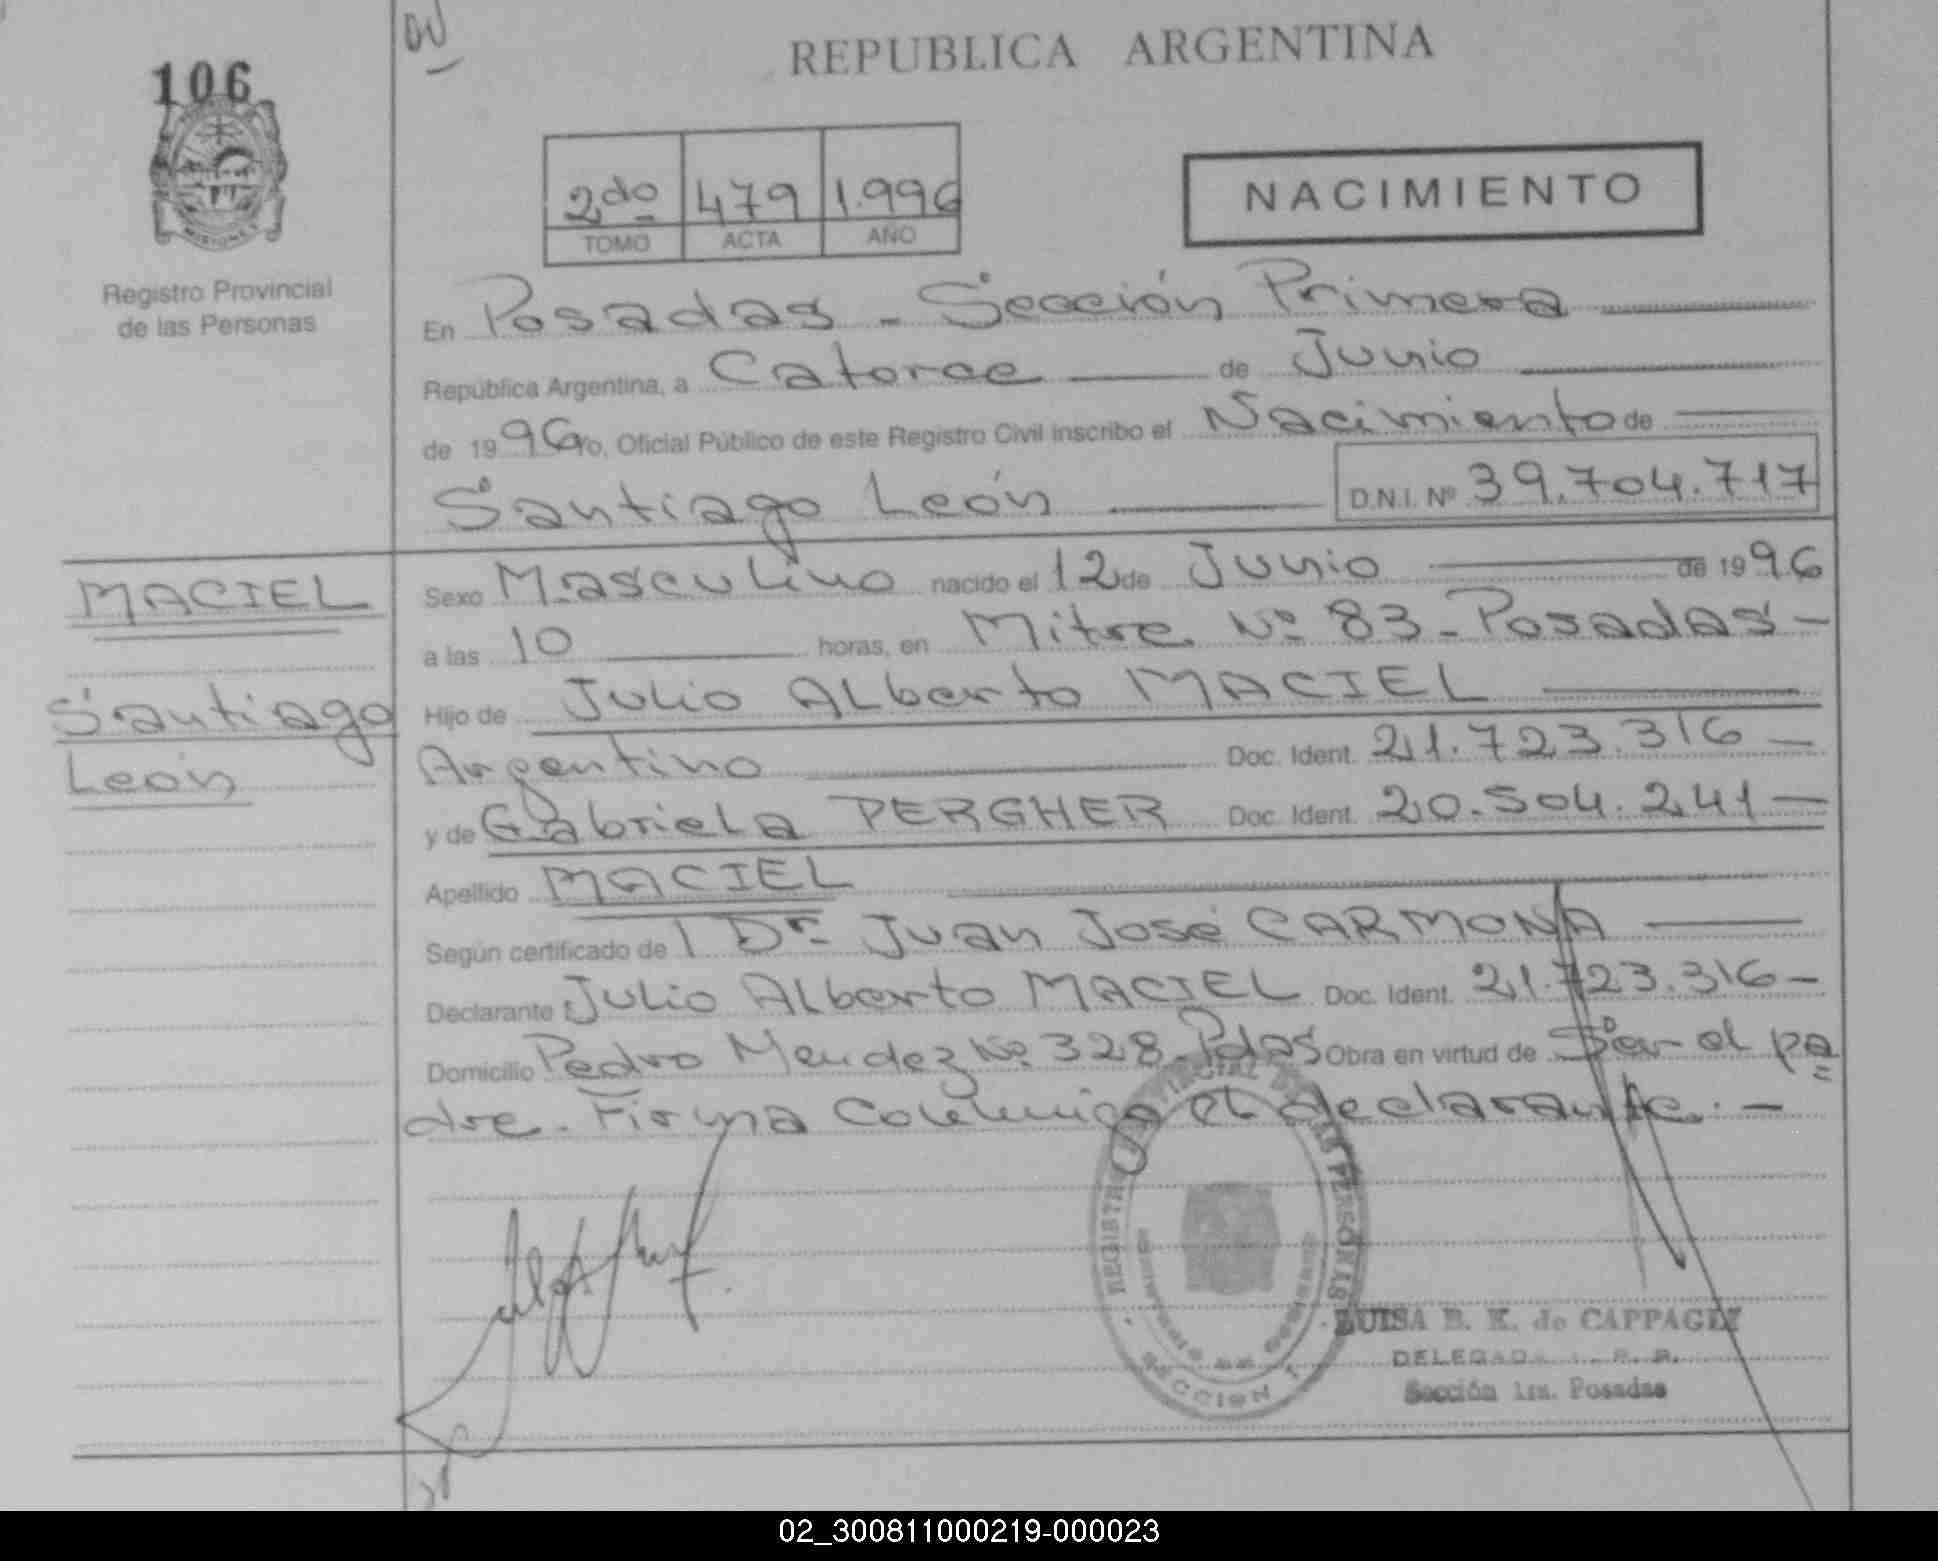 106
MISIONES
Registro Provincial
de las Personas
REPUBLICA ARGENTINA
2do 479 1.996
TOMO ACTA AÑO
NACIMIENTO
En Posadas - Sección Primera
República Argentina, a Catorce de Junio
de 1996 Yo, Oficial Público de este Registro Civil inscribo el Nacimiento de
Santiago León D.N.I. Nº 39.704.717
MACIEL
Santiago
León
Sexo Masculino nacido el 12 de Junio de 1996
a las 10 horas, en Mitre Nº 83 - Posadas -
Hijo de Julio Alberto MACIEL
Argentino Doc. Ident. 21.723.316 -
y de Gabriela PERGHER Doc. Ident. 20.504.241 -
Apellido MACIEL
Según certificado de l Dr. Juan José CARMONA
Declarante : Julio Alberto MACIEL Doc. Ident. 21.723.316 -
Domicilio Pedro Mendez Nº 328 - Pdas Obra en virtud de Ser el pa
dre. Firma Conmigo el declarante. -
REGISTRO PROVINCIAL DE LAS PERSONAS
PROVINCIA DE MISIONES
SECCION 1
LUISA B. K. de CAPPAGLI
DELEGADA R. P.
Sección 1ra. Posadas
02_300811000219-000023